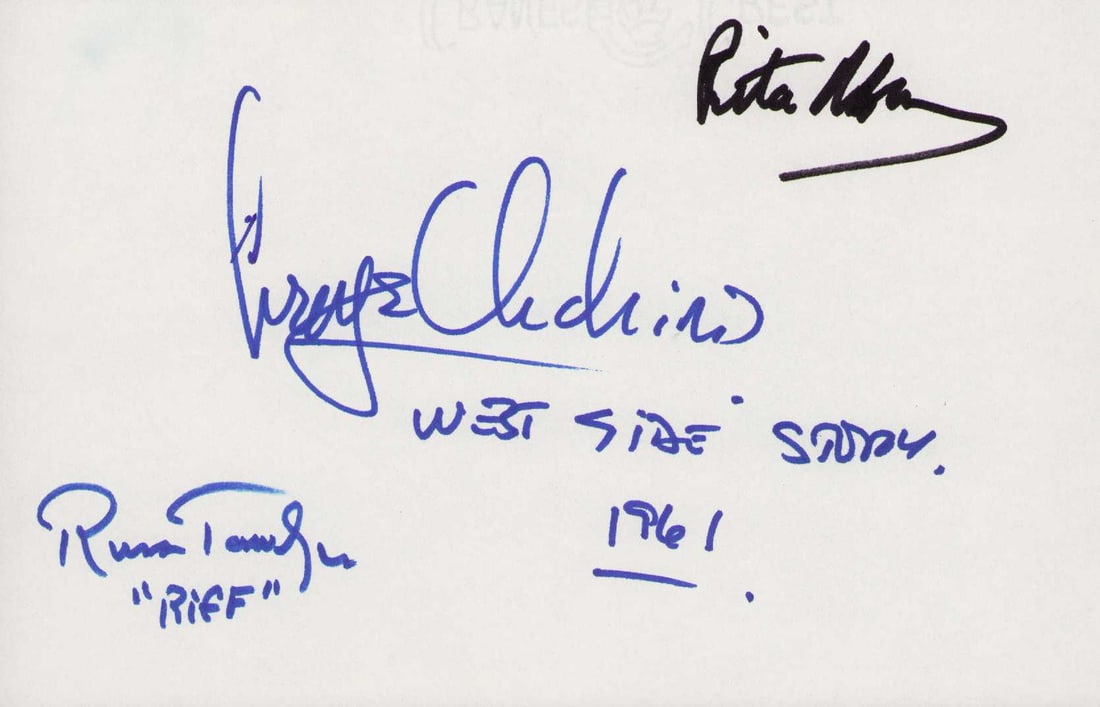 Rita Moreno
George Chakiris
WEST SIDE STORY.
1961.
Russ Tamblyn
"RIFF"